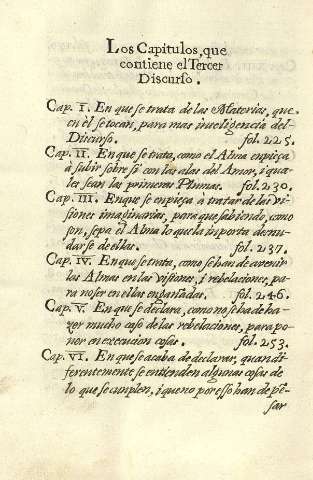 Los Capitulos, que
contiene el Tercer
Discurso.
Cap. I. En que se trata de las Materias, que
en el se tocan, para mas inteligencia del
Discurso. fol. 225.
Cap. II. En que se trata, como el Alma enpieça
a subir sobre si con las alas del Amor, i qua
les sean las primeras Plumas. fol. 230.
Cap. III. En que se enpieça a tratar de las vi
siones imaginarias, para que sabiendo, como
son, sepa el Alma lo que la inporta desnu
darse de ellas. fol. 237.
Cap. IV. En que se trata, como se han de avenir
las Almas en las visiones, i rebelaciones, pa
ra no ser en ellas engañadas. fol. 246.
Cap. V. En que se declara, como no se ha de ha
zer mucho caso de las rebelaciones, para po
ner en execucion cosas. fol. 253.
Cap. VI. En que se acaba de declarar, quan di
ferentemente se entienden algunas cosas de
lo que se cunplen, i que no por esso han de pẽ-
sar